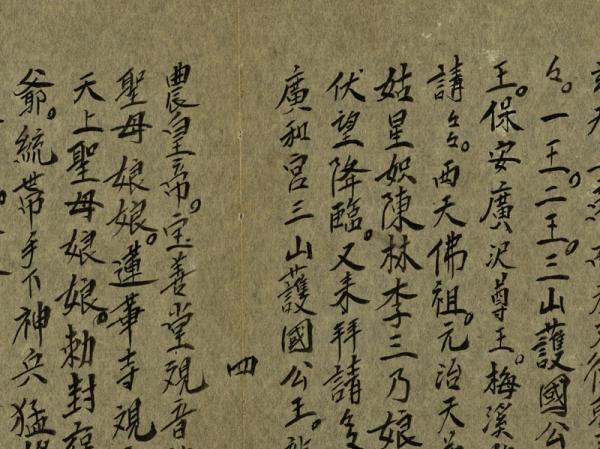 々。一王。二王。三山護國公
王。保安廣沢尊王。梅溪
請々。西天佛祖。元治天
姑星娯陳林李三乃娘
伏望降臨。又来拜請
廣和宮三山護國公王。
四
農皇帝。宝善堂观音
聖母娘娘。蓮華寺观
天上聖母娘娘。勅封
爺。統帯手下神兵猛